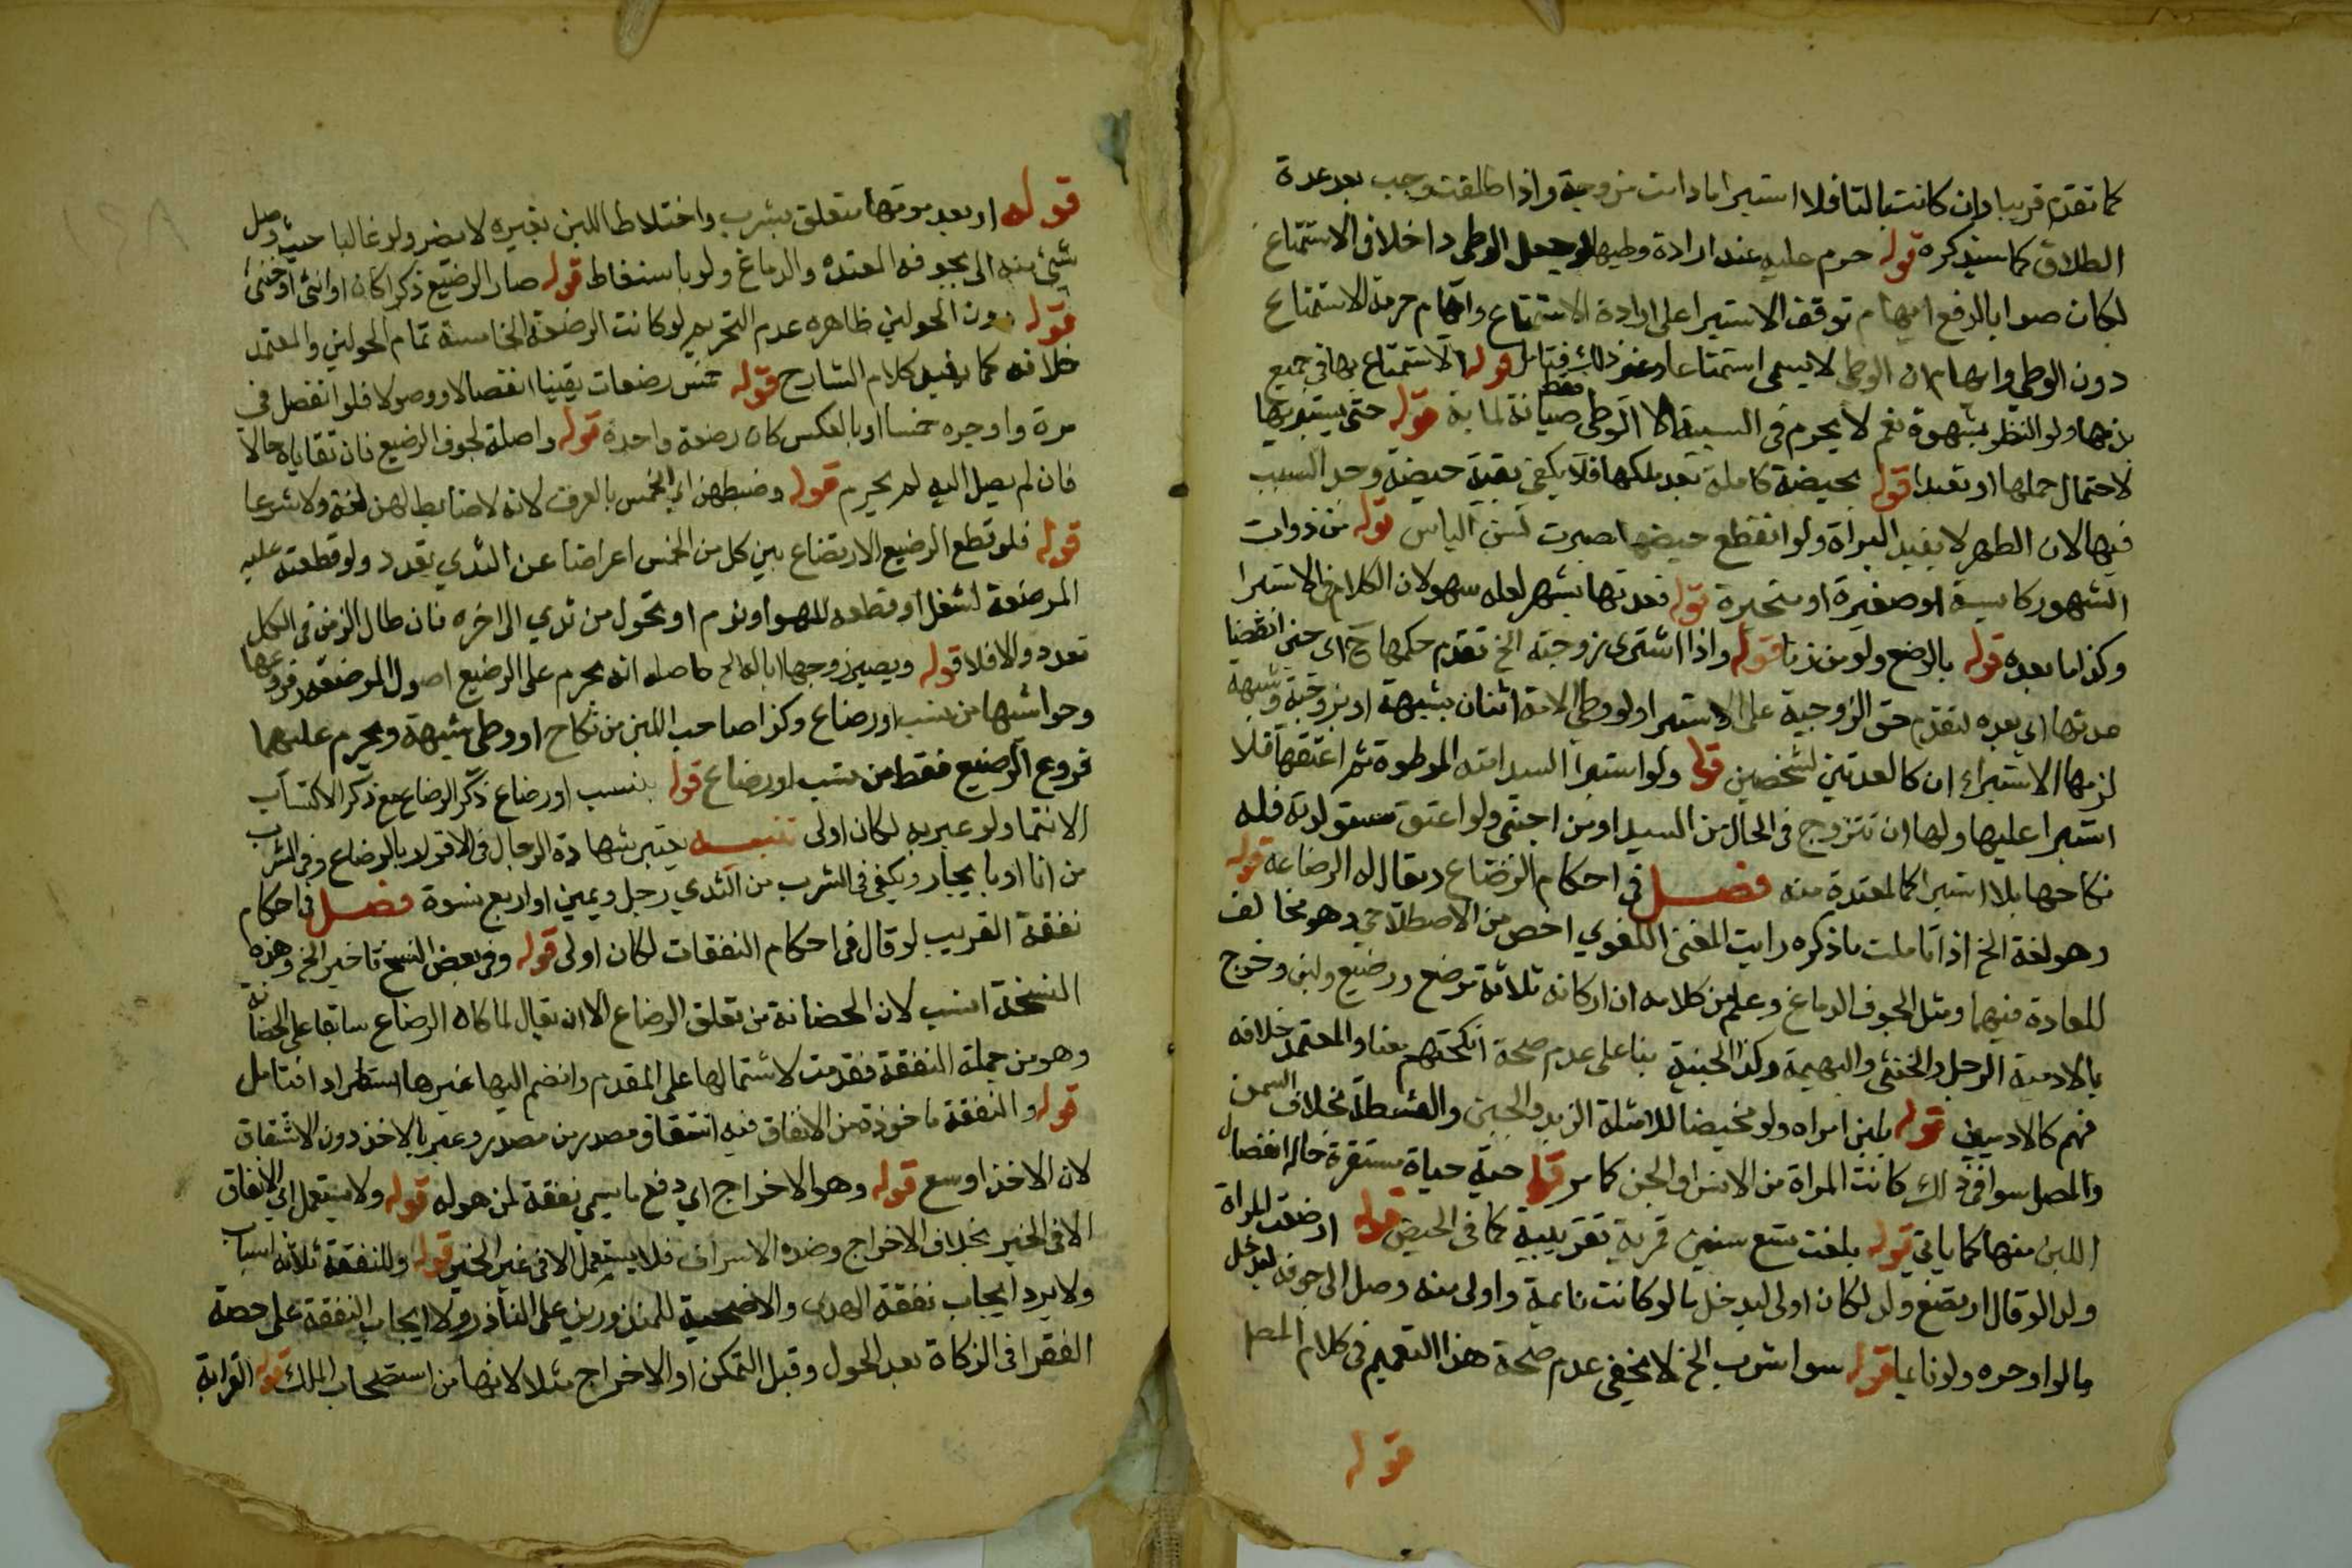 كما تقدم قريبا وان كانت بالتا فلا استبرا ما دامت مزوجة واذا طلقت وجب بعد عدة
الطلاق كما سيذكره قوله حرم عليه عند ارادة وطيها لو جعل الوطي داخلا في الاستمتاع
لكان صوابا لدفع ايهام توقف الاستبرا على ارادة الاستمتاع وايهام حرمة الاستمتاع
دون الوطي وايهام ان الوطي لا يسمى استمتاعا وغير ذلك فتامل قوله الاستمتاع بها في جميع
بدنها ولو النظر بشهوة نعم لا يحرم في المسبية الا الوطي فقط صيانة لمايه قوله حتى يستبريها
لاحتمال حملها او تعبدا قوله بحيضة كاملة بعد ملكها فلا يكفي بقية حيضة وجد السبب
فيها لان الطهر لا يفيد البراة ولو انقطع حيضها صبرت لسن الياس قوله من ذوات
الشهور كايسة او صغيرة او متحيرة قوله فعدتها بشهر لعله سهو لان الكلام في الاستبرا
وكذا ما بعده قوله بالوضع ولو من زنا قوله واذا اشترى زوجته الخ تقدم حكمها ح اي حتى انقضيا
عدتها اي بعده لتقدم حق الزوجية على الاستبرا ولو وطي الامة اثنان بشبهة او بزوجية وشبهة
لزمها الاستبراء ان كالعدتين لشخصين قوله ولو استبرا السيد امته الموطوة ثم اعتقها فلا
استبرا عليها ولها ان تتزوج في الحال من السيد او من اجنبي ولو اعتق مستولدته فله
نكاحها بلا استبرا كالمعتدة منه فصل في احكام الرضاع ويقال له الرضاعة قوله
وهو لغة الخ اذا تاملت ما ذكره رايت المعنى اللغوي اخص من الاصطلاحي وهو مخالف
للعادة فيهما ومثل الجوف الدماغ وعلم من كلامه ان اركانه ثلاثة مرضع ورضيع ولبن وخرج
بالادمية الرجل والخنثى والبهيمة وكذا الجنية بنا على عدم صحة انكحتهم معنا والمعتمد خلافه
فهم كالادميين قوله بلبن امراه ولو مخيضا للامثلة الزبد والجبن والقشطة بخلاف السمن
والمصل سوا في ذلك كانت المراة من الانس او الجن كما مر قوله حية حياة مستقرة حال انفصال
اللبن منها كما ياتي قوله بلغت تسع سنين قمرية تقريبية كما في الحيض قوله ارضعت المراة
ولدا لو قال ارتضع ولد لكان اولى ليدخل ما لو كانت نايمة واولى منه وصل الى جوفه ليدخل
ما لو اوجره ولو نايما قوله سوا شرب الخ لا يخفى عدم صحة هذا التعميم في كلام المص
قوله
قوله او بعد موتها متعلق بشرب واختلاط اللبن بغيره لا يضر ولو غالبا حيث وصل
شيء منه الى جوفه المعتده والدماغ ولو باسقاط قوله صار الرضيع ذكرا كان او انثى او خنثى
قوله دون الحولين ظاهره عدم التحريم لو كانت الرضعة الخامسة تمام الحولين والمعتمد
خلافه كما يفيده كلام الشارح قوله خمس رضعات يقينا انفصالا ووصولا فلو انفصل في
مرة واوجره خمسا او بالعكس كان رضعة واحدة قوله واصلة لجوف الرضيع فان تقاياه حالا
فان لم يصل اليه لم يحرم قوله وضبطهن اي الخمس بالعرف لانه لا ضابط لهن لغة ولا شرعا
قوله فلو قطع الرضيع الارتضاع بين كل من الخمس اعراضا عن الثدي تعدد ولو قطعته عليه
المرضعة لشغل او قطعه للهو او نوم او تحول من ثدي الى اخره فان طال الزمن في الكل
تعدد والا فلا قوله ويصير زوجها ابا له الخ حاصله انه يحرم على الرضيع اصول المرضعة وفروعها
وحواشيها من نسب او رضاع وكذا صاحب اللبن من نكاح او وطي شبهة ويحرم عليهما
فروع الرضيع فقط من نسب او رضاع قوله بنسب او رضاع ذكر الرضاع مع ذكر الاكتساب
الانتما ولو عبر به لكان اولى تنبيه يعتبر شهادة الرجال في الاقرار بالرضاع وفي الشرب
من انا او بايجار ويكفي في الشرب من الثدي رجل ويمين او اربع نسوة فصل في احكام
نفقة القريب لو قال في احكام النفقات لكان اولى قوله وفي بعض النسخ تاخير الخ وهذه
النسخة انسب لان الحضانة من تعلق الرضاع الا ان يقال لما كان الرضاع سابقا على الحضانة
وهو من جملة النفقة فقدمت لاشتمالها على المقدم وانضم اليها غيرها استطراد افتامل
قوله والنفقة ماخوذة من الانفاق فيه اشتقاق مصدر من مصدر وعبر بالاخذ دون الاشتقاق
لان الاخذ اوسع قوله وهو الاخراج اي دفع ما يسمى نفقة لمن هو له قوله ولا يستعمل اي الانفاق
الا في الخير بخلاف الاخراج وضده الاسراف فلا يستعمل الا في غير الخير قوله وللنفقة ثلاثة اسباب
ولا يرد ايجاب نفقة الهدي والاضحية المنذورين على الناذر ولا ايجاب النفقة على حصة
الفقرا في الزكاة بعد الحول وقبل التمكن او الاخراج مثلا لانها من استصحاب الملك قوله القرابة